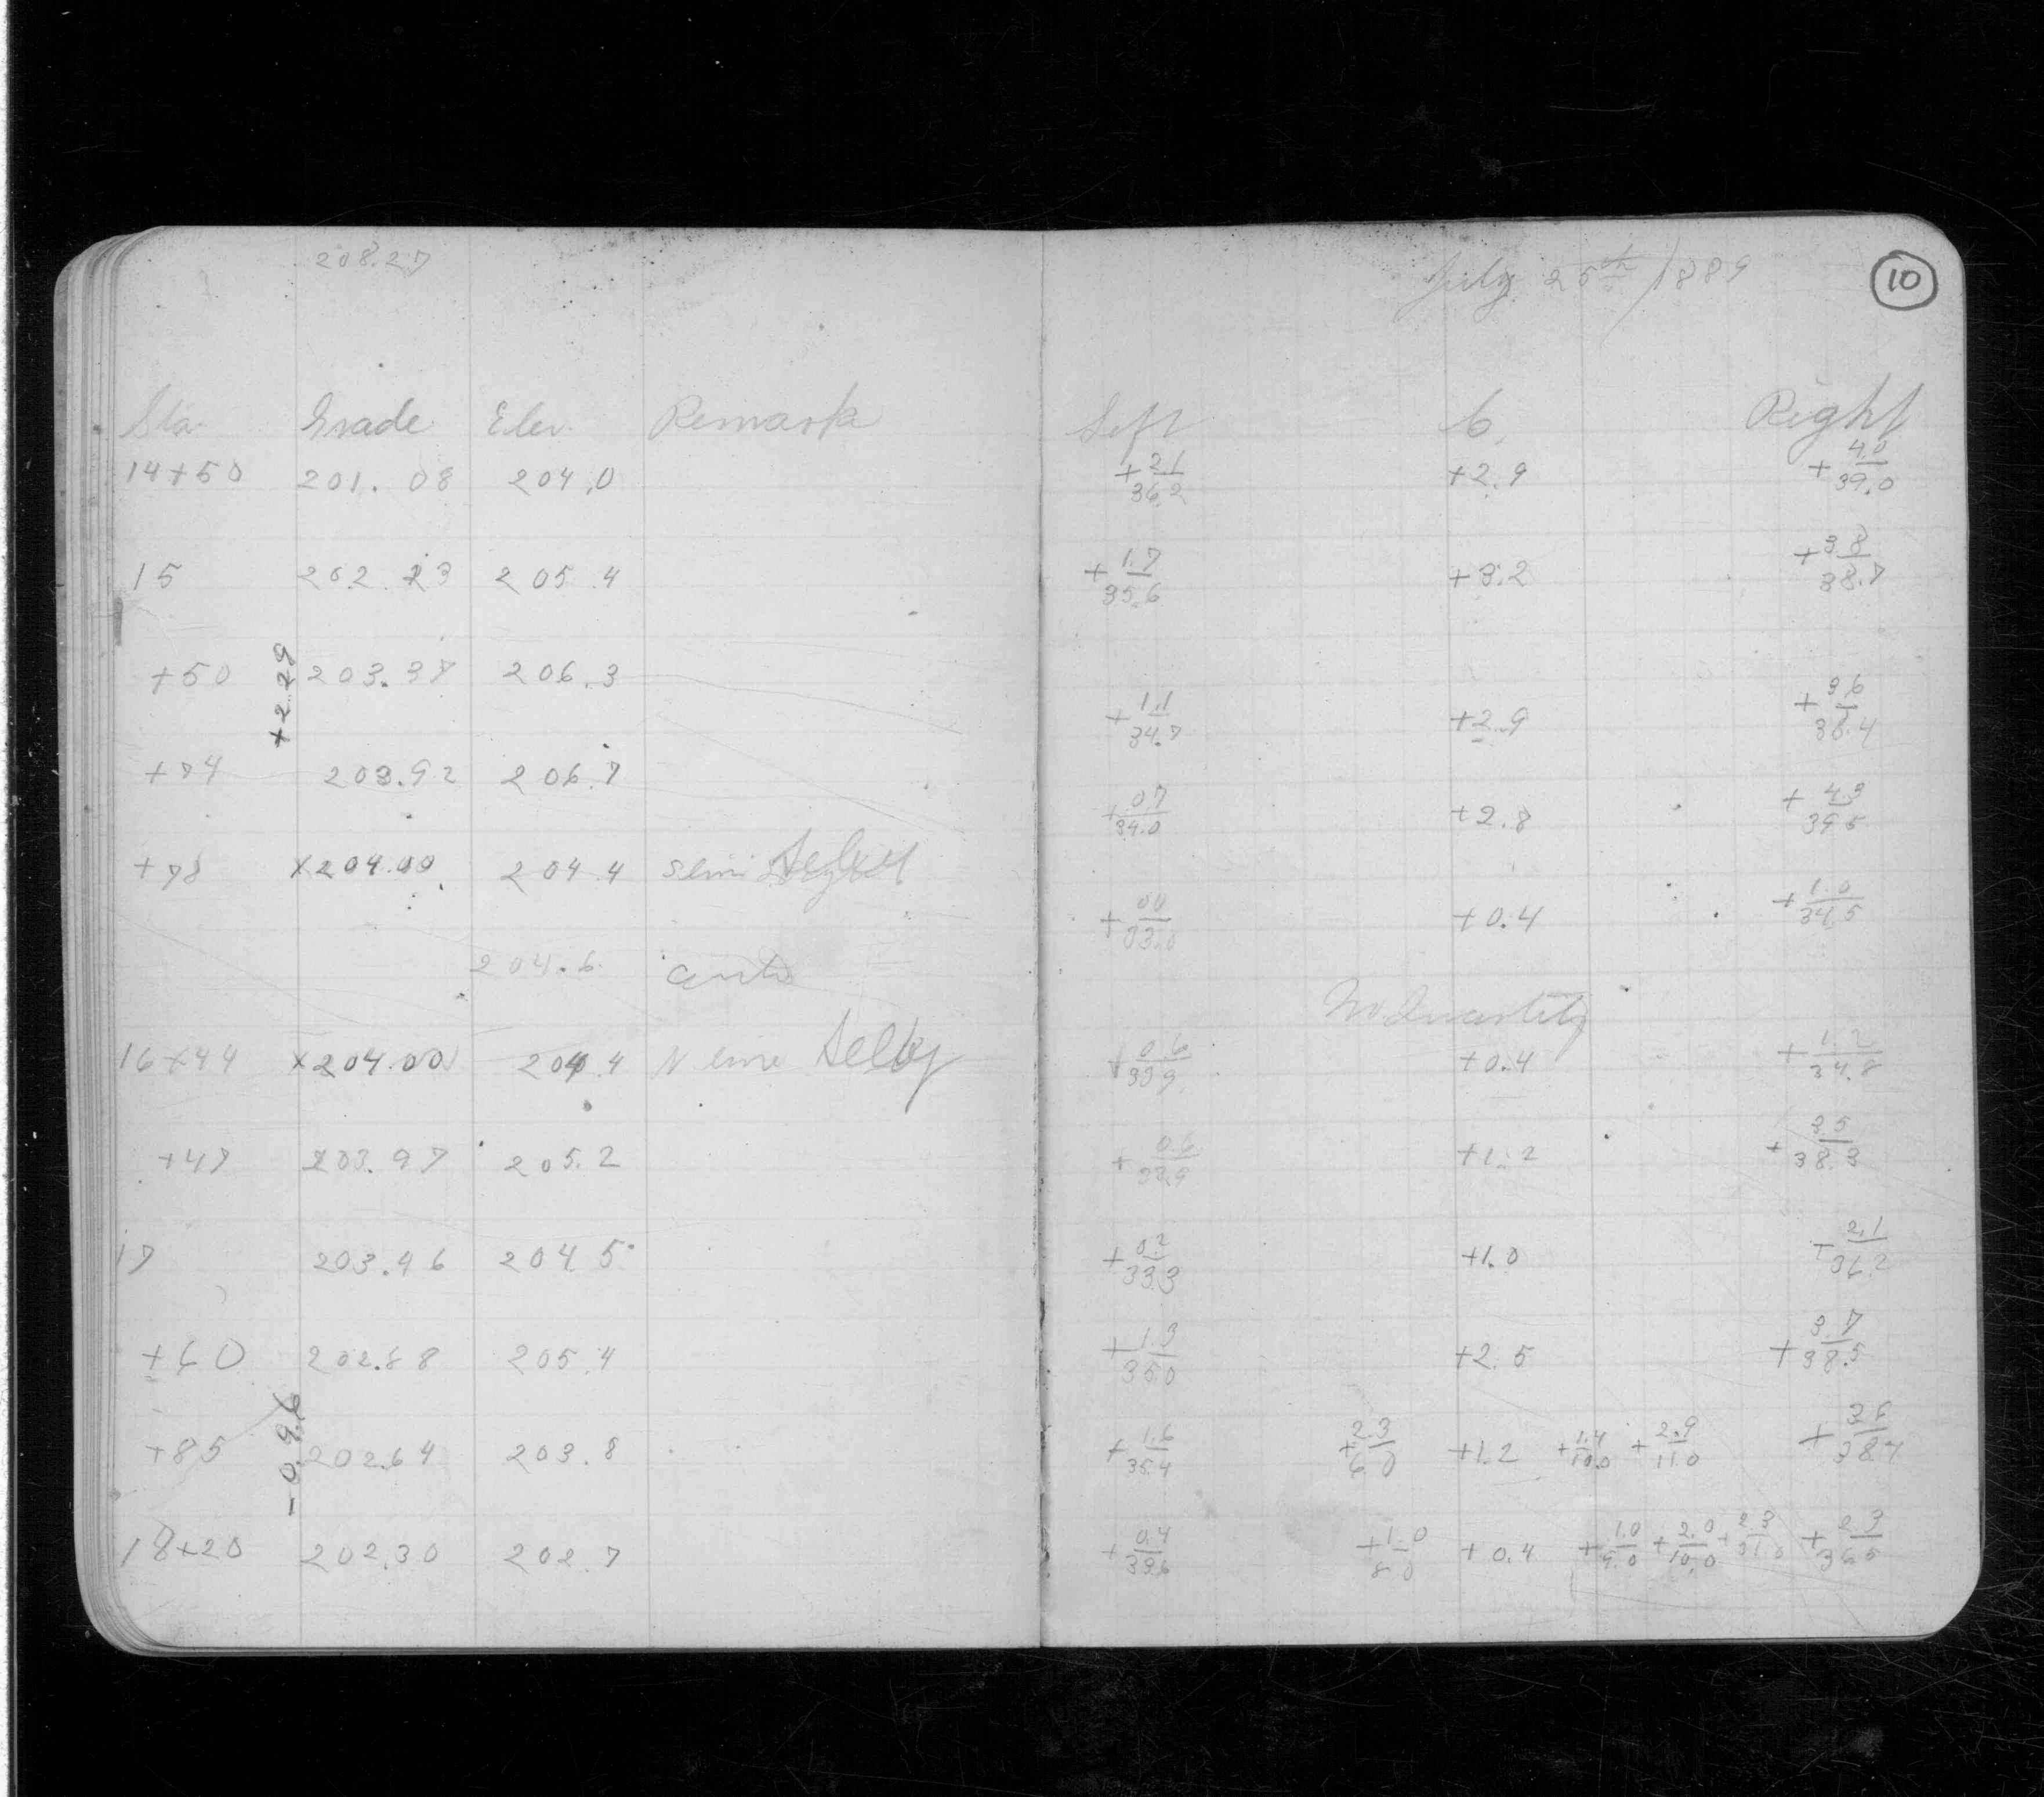 208.27
July 25th / 1889
10
Sta. Grade Elev. Remarks Left C. Right
14+50 201.08 204.0 +2.1/36.2 +2.9 +4.0/39.0
15 202.23 205.4 +1.7/35.6 +3.2 +3.8/38.7
+2.29
+50 203.37 206.3 +1.1/34.7 +2.9 +3.6/38.4
+74 203.92 206.7 +0.7/34.0 +2.8 +4.3/39.5
+78 x204.00 204.4 S line Selby +00/33.0 +0.4 +1.0/34.5
204.6 No Quantity
16+44 x204.00 204.4 N line Selby +0.6/33.9 +0.4 +1.2/34.8
+47 203.97 205.2 +0.6/33.9 +1.2 +3.5/38.3
17 203.46 204.5 +0.2/33.3 +1.0 +2.1/36.2
+60 202.88 205.4 +1.3/35.0 +2.5 +3.7/38.5
-0.96
+85 202.64 203.8 +1.6/35.4 +2.3/6.0 +1.2 +1.4/10.0 +2.9/11.0
18+20 202.30 202.7 +0.4/33.6 +1.0/8.0 +0.4 +1.0/9.0 +2.0/10.0 +2.3/31.0 +2.3/36.5